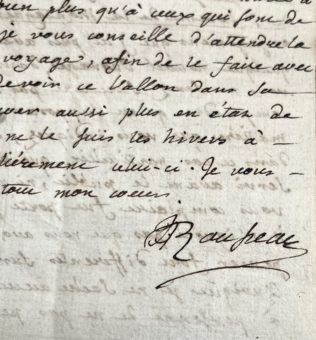 bien plus qu'à ceux qui font de
je vous conseille d'attendre la
voyage, afin de le faire avec
devoir ce Vallon dans sa
aussi plus en état de
ne le suis les hivers à-
lièrement celui-ci. Je vous-
tout mon coeur.
JJRousseau